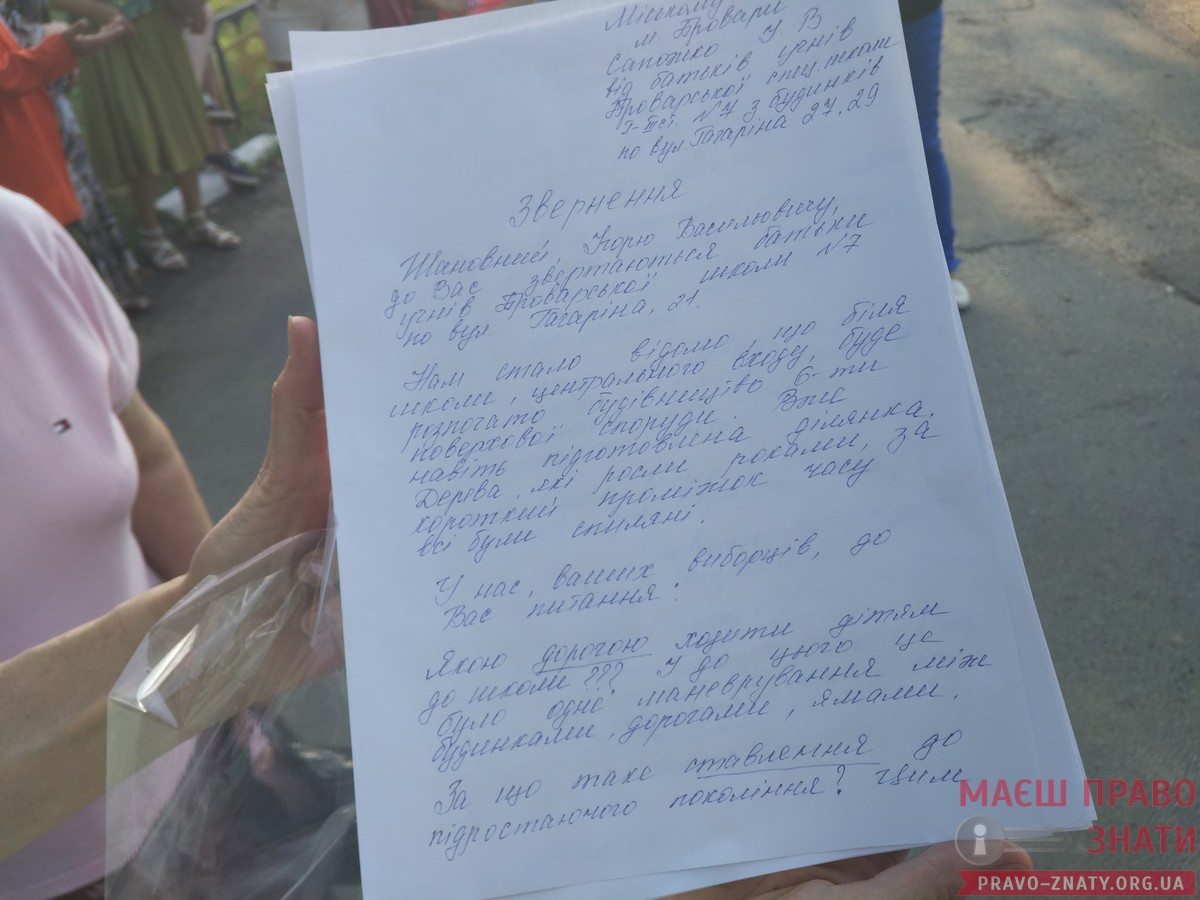 Міському
м Бровари
Сапожко І. В
від батьків учнів
Броварської спец.школи
I-IIIст. №7 з будинків
по вул Гагаріна 27, 29
Звернення
Шановний, Ігорю Васильовичу,
до Вас звертаються батьки
учнів Броварської школи №7
по вул. Гагаріна, 21.
Нам стало відомо, що біля
школи, центрального входу, буде
розпочато будівництво 6-ти
поверхової споруди. Вже
навіть підготовлена ділянка.
Дерева, які росли роками, за
короткий проміжок часу
всі були спиляні.
У нас, ваших виборців, до
Вас питання:
Якою дорогою ходити дітям
до школи??? І до цього це
було одне маневрування між
будинками, дорогами, ямами.
За що таке ставлення до
підростаючого покоління? Цим
МАЄШ ПРАВО
ЗНАТИ
PRAVO-ZNATY.ORG.UA